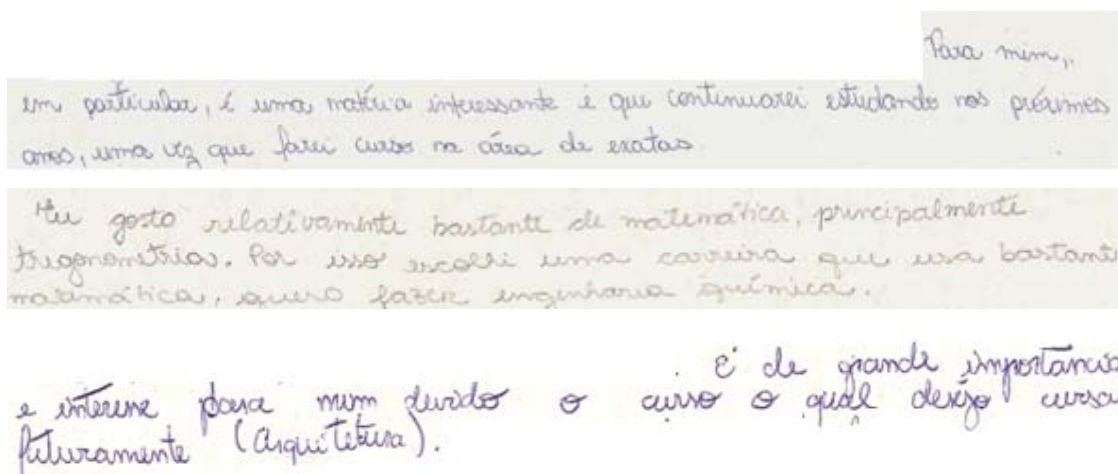 Para mim,
em particular, é uma matéria interessante e que continuarei estudando nos próximos
anos, uma vez que farei curso na área de exatas.
Eu gosto relativamente bastante de matemática, principalmente
trigonometria. Por isso escolhi uma carreira que usa bastante
matemática, quero fazer engenharia química.
É de grande importância
e interesse para mim devido o curso o qual desejo cursa
futuramente (Arquitetura).